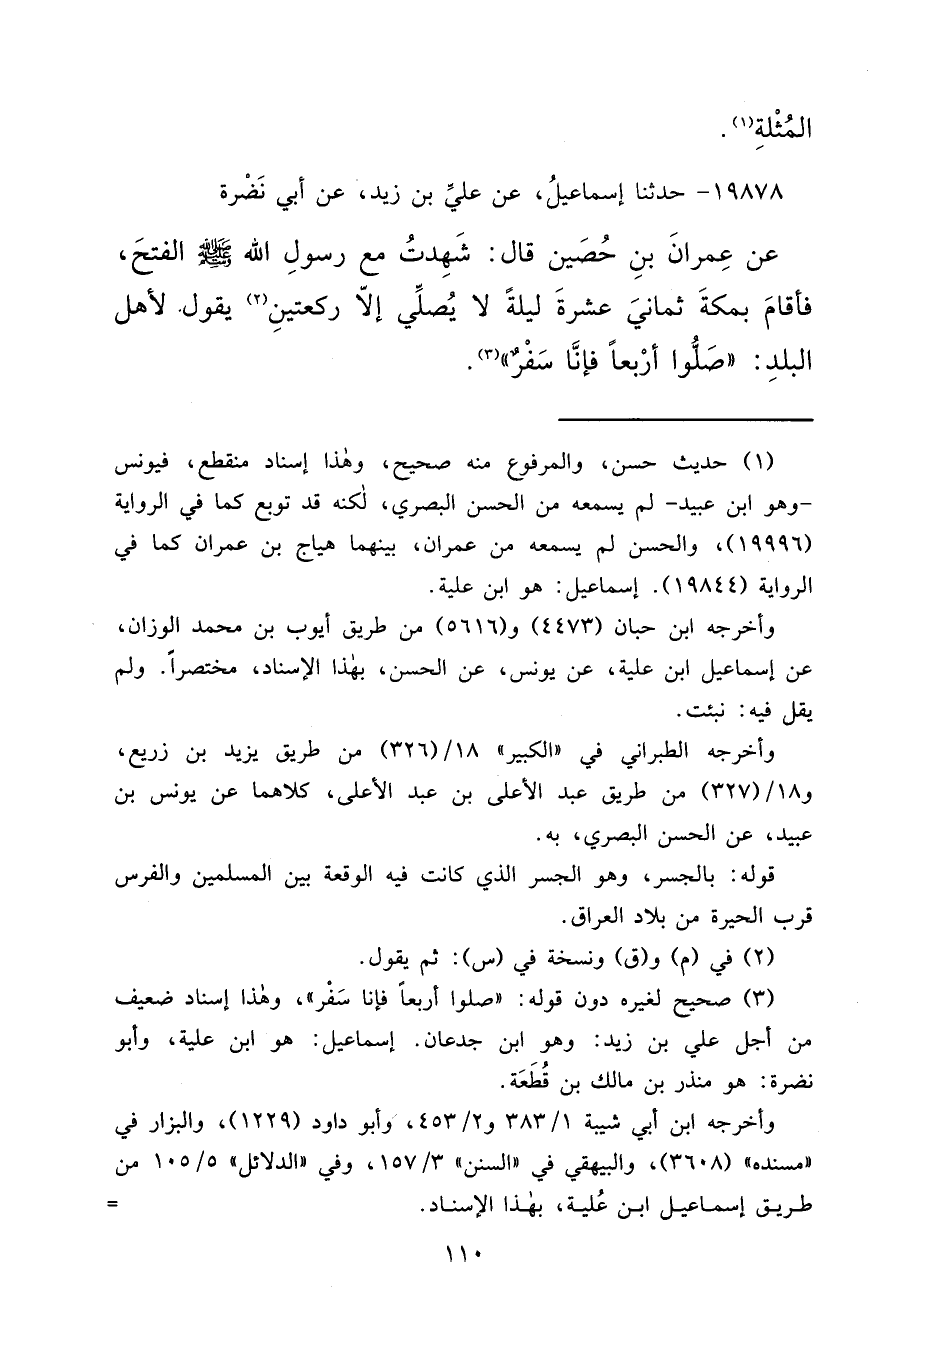 المُثْلةِ(١).
١٩٨٧٨- حدثنا إسماعيلُ، عن عليِّ بن زيد، عن أبي نَضْرة
عن عِمرانَ بنِ حُصَين قال: شَهِدتُ مع رسولِ الله ﷺ الفتحَ،
فأقامَ بمكةَ ثمانيَ عشرةَ ليلةً لا يُصلِّي إلاّ ركعتينِ(٢) يقول لأهل
البلدِ: «صَلُّوا أرْبعاً فإنَّا سَفْرٌ»(٣).
(١) حديث حسن، والمرفوع منه صحيح، وهٰذا إسناد منقطع، فيونس
-وهو ابن عبيد- لم يسمعه من الحسن البصري، لٰكنه قد توبع كما في الرواية
(١٩٩٩٦)، والحسن لم يسمعه من عمران، بينهما هياج بن عمران كما في
الرواية (١٩٨٤٤). إسماعيل: هو ابن علية.
وأخرجه ابن حبان (٤٤٧٣) و(٥٦١٦) من طريق أيوب بن محمد الوزان،
عن إسماعيل ابن علية، عن يونس، عن الحسن، بهٰذا الإسناد، مختصراً. ولم
يقل فيه: نبئت.
وأخرجه الطبراني في «الكبير» ١٨/(٣٢٦) من طريق يزيد بن زريع،
و١٨/(٣٢٧) من طريق عبد الأعلى بن عبد الأعلى، كلاهما عن يونس بن
عبيد، عن الحسن البصري، به.
قوله: بالجسر، وهو الجسر الذي كانت فيه الوقعة بين المسلمين والفرس
قرب الحيرة من بلاد العراق.
(٢) في (م) و(ق) ونسخة في (س): ثم يقول.
(٣) صحيح لغيره دون قوله: «صلوا أربعاً فإنا سَفْر»، وهٰذا إسناد ضعيف
من أجل علي بن زيد: وهو ابن جدعان. إسماعيل: هو ابن علية، وأبو
نضرة: هو منذر بن مالك بن قُطَعَة.
وأخرجه ابن أبي شيبة ١/ ٣٨٣ و٢/ ٤٥٣، وأبو داود (١٢٢٩)، والبزار في
«مسنده» (٣٦٠٨)، والبيهقي في «السنن» ٣/ ١٥٧، وفي «الدلائل» ٥/ ١٠٥ من
طريق إسماعيل ابن عُلية، بهٰذا الإسناد. =
١١٠